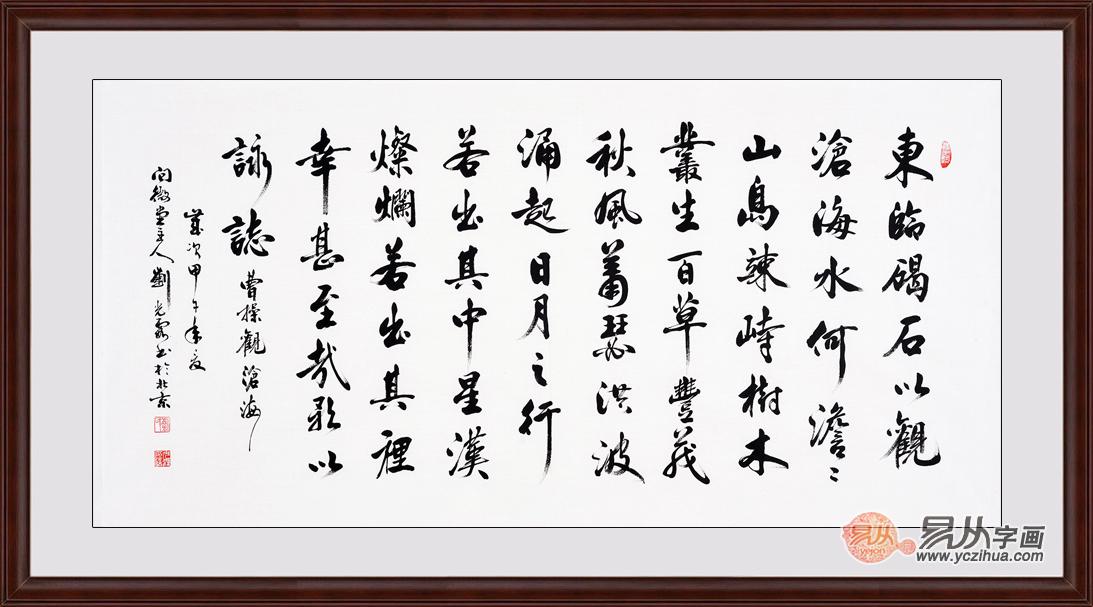 東臨碣石以觀
滄海水何澹〻
山島竦峙樹木
叢生百草豐茂
秋風蕭瑟洪波
涌起日月之行
若出其中星漢
燦爛若出其裡
幸甚至哉歌以
詠誌 曹操觀滄海
歲次甲午年夏
微堂主人劉光霞书於北京
易从 yejon 易从字画
www.yczihua.com